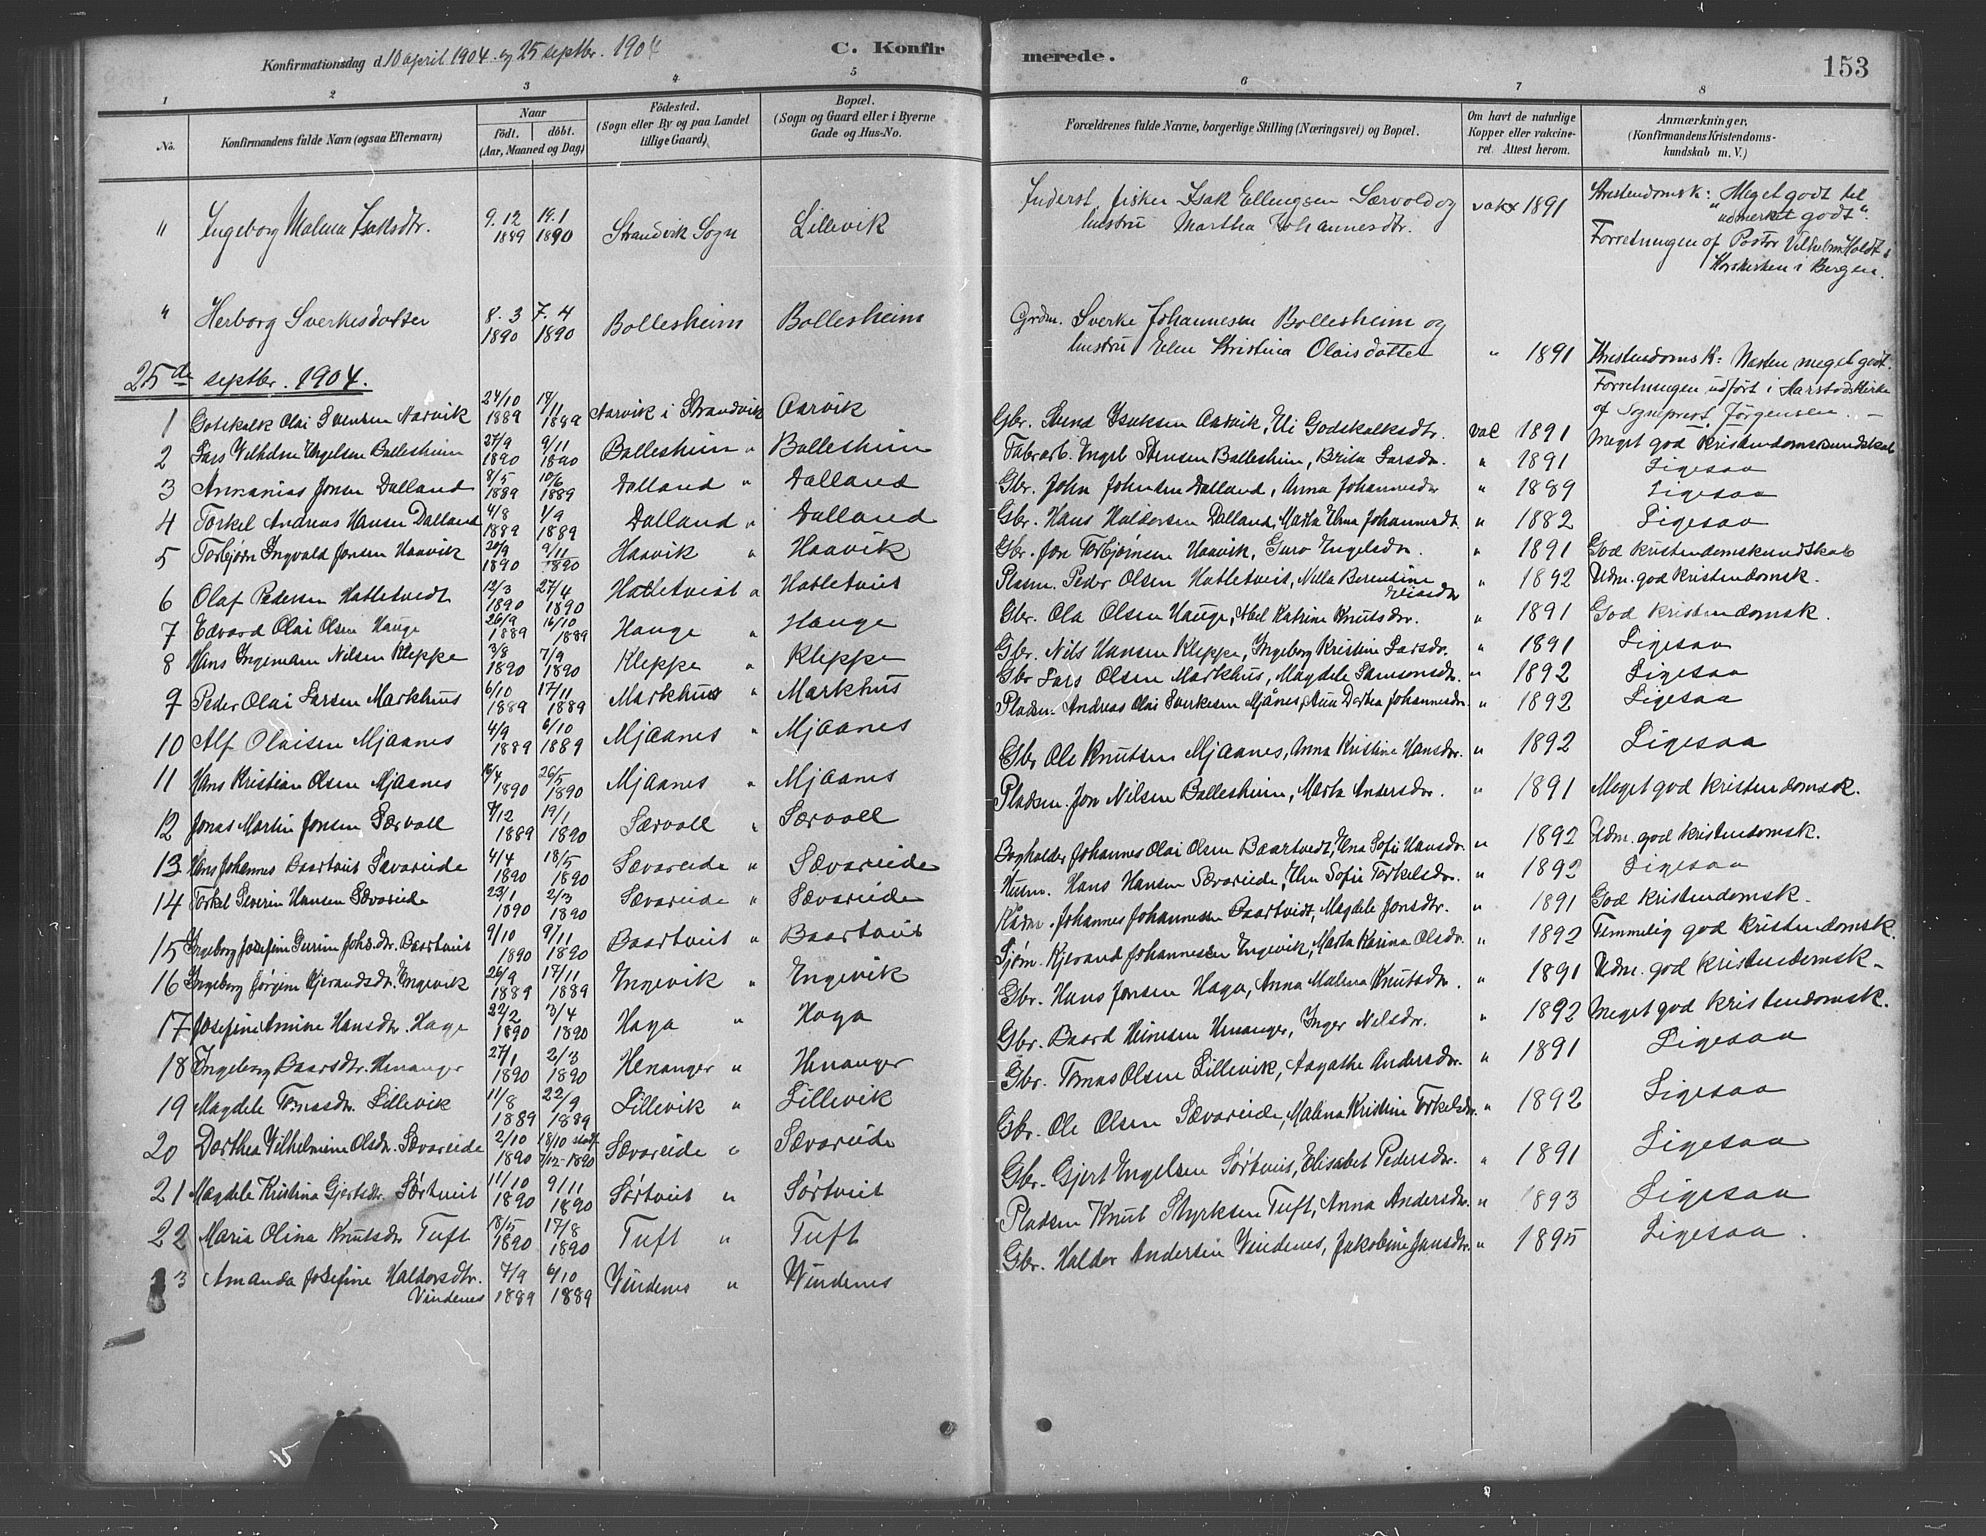 Konfirmationsdag d 10 april 1904. og 25 septbr. 1904
C. Konfirmerede.
153
1 2 3 4 5 6 7 8
No.
Konfirmandens fulde Navn (ogsaa Efternavn)
Naar
födt. döbt.
(Aar, Maaned og Dag)
Födested.
(Sogn eller By og paa Landet
tillige Gaard)
Bopæl.
(Sogn og Gaard eller i Byerne
Gade og Hus-No.
Forældrenes fulde Navne, borgerlige Stilling (Næringsvei) og Bopæl.
Om havt de naturlige
Kopper eller vakcine-
ret. Attest herom.
Anmærkninger.
(Konfirmandens Kristendoms-
kundskab m. V.)
" Ingeborg Malena Isaksdtr. 9.12 1889 19.1 1890 Strandvik Sogn Lillevik Inderst, fisker Isak Ellingsen Særvold og hustru Martha Johannesdtr. vakx 1891 Kristendomsk: "Meget godt til udmerket godt".
Forretningen af Pastor Vilhelm Holdt i Korskirken i Bergen.
" Herborg Sverkesdatter 8.3 1890 7.4 1890 Bollesheim Bollesheim Grdm. Sverke Johannesen Bollesheim og hustru Elen Kristina Olaisdatter " 1891 Kristendomsk: Næsten meget godt.
Forretningen udført i Aarstadkirke af Sogneprest Jørgensen
25de septbr. 1904.
1 Gotskalk Olai Svensen Aarvik 24/10 1889 17/11 1889 Aarvik i Strandvik Aarvik Gbr. Svend Isaksen Aarvik, Eli Godskalksdtr. vac 1891 Meget god kristendomskundskab
2 Lars Vilhelm Engelsen Ballesheim 27/9 1890 9/11 1890 Ballesheim " Ballesheim Fabrarb. Engel Stensen Ballesheim, Brita Larsdr. " 1891 Ligesaa
3 Annanias Jonsen Dalland 8/5 1889 10/6 1889 Dalland " Dalland Gbr. John Johnsen Dalland, Anna Johannesdr " 1889 Ligesaa
4 Torkel Andreas Hansen Dalland 4/8 1889 1/9 1889 Dalland " Dalland Gbr. Hans Haldorsen Dalland, Marta Elena Johannesdt. " 1882 Ligesaa
5 Torbjørn Ingvald Jonsen Haavik 20/9 1890 9/11 1890 Haavik " Haavik Gbr. Jon Torbjørnsen Haavik, Guro Engelsdr. " 1891 God kristendomskundskab
6 Olaf Pedersen Hatletvedt 12/3 1890 27/4 1890 Hatletveit " Hatletveit Pladsm. Peder Olsen Hatletveit, Nella Berentine Eliasdtr " 1892 Udm. god kristendomsk.
7 Edvard Olai Olsen Hauge 26/9 1889 16/10 1889 Hauge " Hauge Gbr. Ola Olsen Hauge, Abel Katrine Knutsdr. " 1891 God kristendomsk.
8 Hans Ingemann Nilsen Kleppe 3/8 1890 7/9 1890 Kleppe " Kleppe Gbr. Nils Hansen Kleppe, Ingeborg Kristine Larsdr. " 1891 Ligesaa
9 Peder Olai Larsen Markhus 6/10 1889 17/11 1889 Markhus " Markhus Gbr Lars Olsen Markhus, Magdele Samsonsdr. " 1892 Ligesaa
10 Alf Olaisen Mjaanes 4/9 1889 6/10 1889 Mjaanes " Mjaanes Pladsm. Andreas Olai Sverkesen Mjånes, Ana Dorthea Johannesdr " 1892 Ligesaa
11 Hans Kristian Olsen Mjaanes 16/4 1890 26/5 1890 Mjaanes " Mjaanes Gbr Ole Knutsen Mjaanes, Anna Kristine Hansdr. " 1892 Ligesaa
12 Jonas Martin Jonsen Særvoll 9/12 1889 19/1 1890 Særvoll " Særvoll Pladsm. Jon Nilsen Ballesheim, Marta Andersdr. " 1891 Meget god kristendomsk.
13 Hans Johannes Baartveit Sævareide 4/4 1890 18/5 1890 Sævareide " Sævareide Bogholder Johannes Olai Olsen Baartvedt, Ena Sofie Hansdr. " 1892 Udm. god kristendomsk.
14 Torkel Severin Hansen Sævareide 23/1 1890 2/3 1890 Sævareide " Sævareide Husm. Hans Hansen Sævareide, Elen Sofie Torkelsdr. " 1892 Ligesaa
15 Ingeborg Josefine Gurine Johs.dtr. Baartveit 9/10 1890 9/11 1890 Baartveit " Baartveit Kårm. Johannes Johannessen Baartveidt, Magdele Jonsdtr. " 1891 God kristendomsk.
16 Ingeborg Jørgine Kjerandsdr. Engevik 26/9 1889 17/11 1889 Engevik " Engevik Sjøm. Kjerand Johannessen Engevik, Marta Karina Olsdr. " 1892 Temmelig god kristendomsk.
17 Josefine Amine Hansdtr. Hage 22/2 1890 3/4 1890 Haga " Haga Gbr. Hans Jonsen Haga, Anna Malena Knutsdr. " 1891 Udm. god kristendomsk.
18 Ingeborg Baarsdtr. Henanger 27/1 1890 2/3 1890 Henanger " Henanger Gbr. Baard Heinesen Henanger, Inger Nilsdr. " 1892 Meget god kristendomsk.
19 Magdele Tomasdr. Lillevik 11/8 1889 22/9 1889 Lillevik " Lillevik Gbr. Tomas Olsen Lillevik, Aagathe Andersdr. " 1891 Ligesaa
20 Dorthea Vilhelmine Olsdr. Sævareide 2/10 1890 18/10 stadf. 7/12-1890 Sævareide " Sævareide Gbr. Ole Olsen Sævareide, Malena Kristine Torkelsdr. " 1892 Ligesaa
21 Magdele Kristina Gjertsdr. Sørtveit 11/10 1890 9/11 1890 Sørtveit " Sørtveit Gbr. Gjert Engelsen Sørtveit, Elisabet Pedersdr. " 1891 Ligesaa
22 Maria Olina Knutsdr Tuft 18/5 1890 17/8 1890 Tuft " Tuft Pladsm Knut Styrksen Tuft, Anna Andersdr. " 1893 Ligesaa
23 Amanda Josefine Haldorsdtr. Vindenes 7/9 1889 6/10 1889 Vindenes " Vindenes Gbr. Haldor Andersen Vindenes, Jakobine Jansdtr. " 1895 Ligesaa.